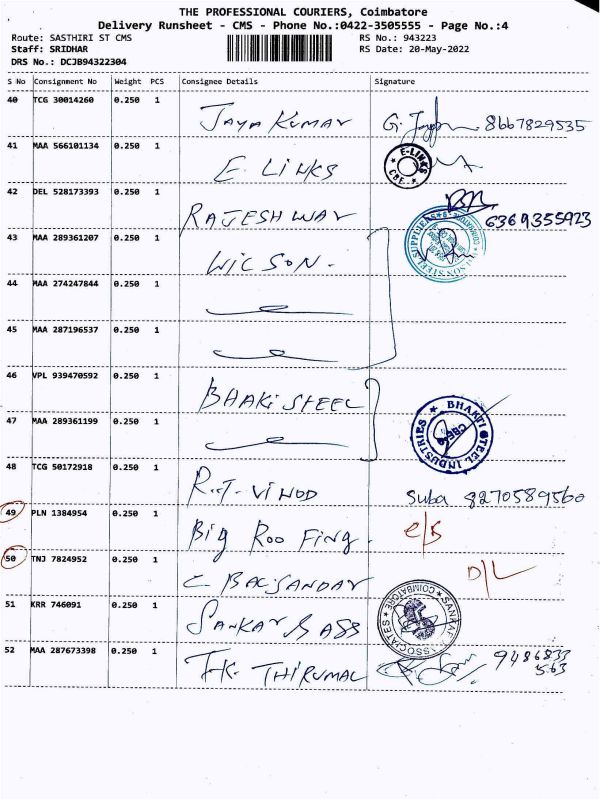 THE PROFESSIONAL COURIERS, Coimbatore
Delivery Runsheet - CMS - Phone No.:0422-3505555 - Page No.:4
Route: SASTHIRI ST CMS RS No.: 943223
Staff: SRIDHAR RS Date: 20-May-2022
DRS No.: DCJB94322304
S No Consignment No Weight PCS Consignee Details Signature
40 TCG 30014260 0.250 1 JAYA KUMAR G. 8667829535
41 MAA 566101134 0.250 1 E. LINKS E-LINKS CBE.
42 DEL 528173393 0.250 1 RAJESHWAR 6369355923
43 MAA 289361207 0.250 1 WILSON. STEEL SUPPLIERS
44 MAA 274247844 0.250 1
45 MAA 287196537 0.250 1
46 VPL 939470592 0.250 1 BHAKI STEEL
47 MAA 289361199 0.250 1 BHAKTI STEEL INDUSTRIES CBE-9
48 TCG 50172918 0.250 1 R.T. VINOD Suba 8270589560
49 PLN 1384954 0.250 1 Big Roo Fing.
50 TNJ 7824952 0.250 1 D/L
51 KRR 746091 0.250 1 SANKAR & ASS SANKAR ASSOCIATES COIMBATORE
52 MAA 287673398 0.250 1 T.K. THIRUMAL 9486833
563